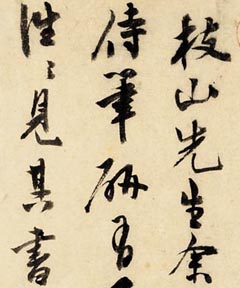 枝山先生余
侍筆研有
往〻見其書